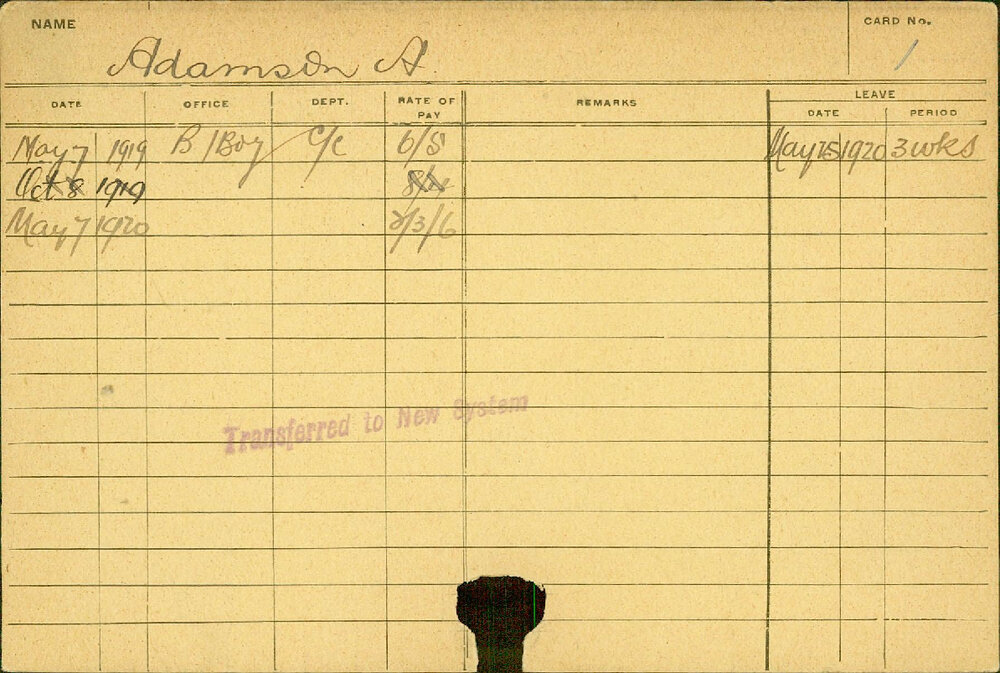 NAME
CARD No.
Adamson A.
1
DATE OFFICE DEPT. RATE OF PAY REMARKS LEAVE
DATE PERIOD
May 7 1919 B/Boy C/c 6/8 May 25 1920 3 wks
Oct 8 1919
May 7 1920 2/3/6
Transferred to New System